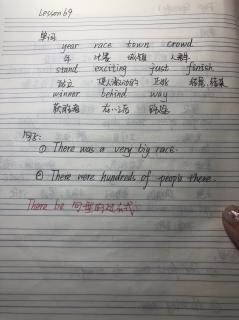 Lesson 69
单词
year race town crowd
年 比赛 城镇 人群
stand exciting just finish
站立 使人激动的 正好 结尾,结束
winner behind way
获胜者 在……之后 路途
句子:
① There was a very big race.
② There were hundreds of people there.
There be 句型的过去式